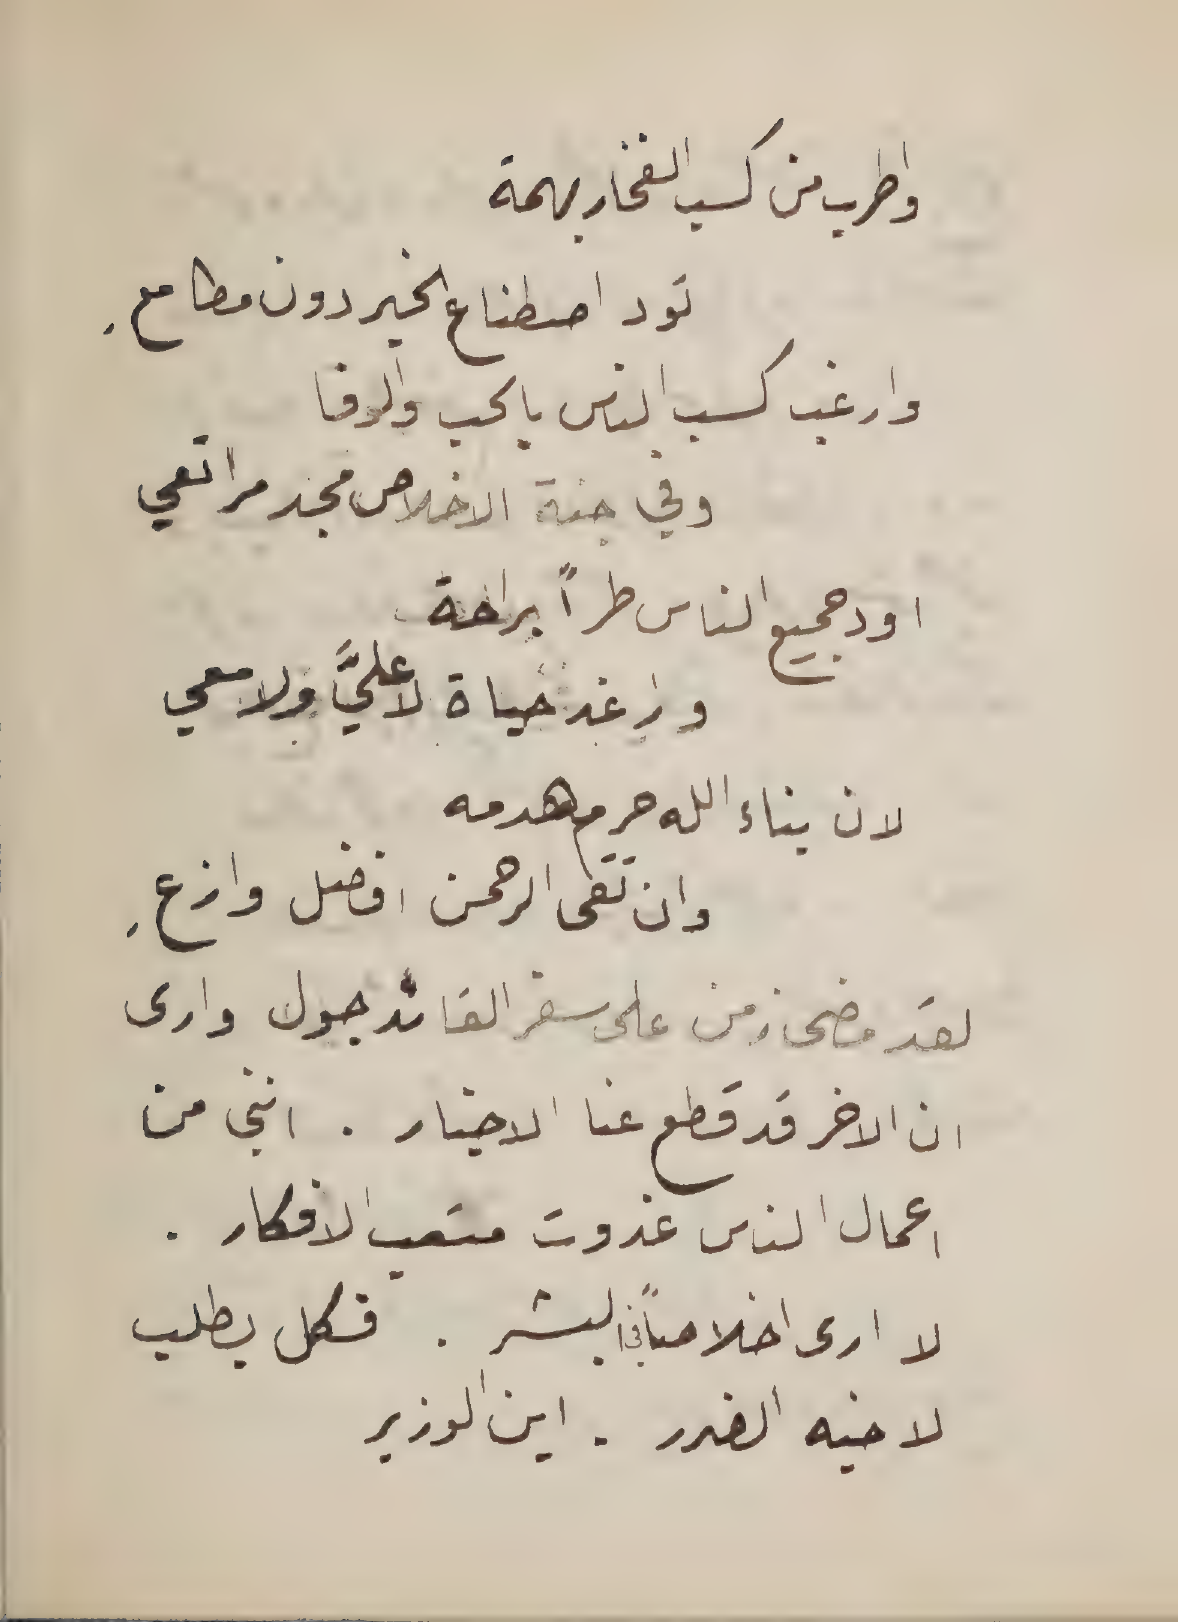 واطرب من كسب الفخار بهمة
تود اصطناع الخير دون مطامع.
وارغب كسب الناس بالحب والوفا
وفي جنة الاخلاص مجد مراتعي
اود جميع الناس طراً براحة
وارغد حياة لا عليَّ ولا معي
لان بناء الله حرم هدمه
وان تقى الرحمن افضل وازع.
لقد مضى زمن على سفر القائد جول وارى
ان الاخر قد قطع عنا الاخبار . انني من
اعمال الناس غدوت متعب الافكار .
لا ارى اخلاصاً في البشر . فكل يطلب
لاخيه الضرر . اين الوزير